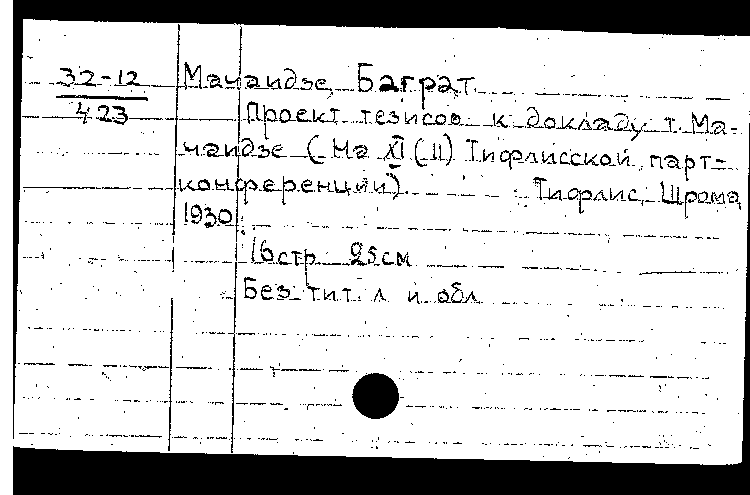 32-12
423
Мачаидзе, Баграт.
Проект тезисов к докладу т. Ма-
чаидзе (На XI (II) Тифлисской парт-
конференции). Тифлис, Шрома,
1930.
16 стр 25 см
Без тит. л и обл